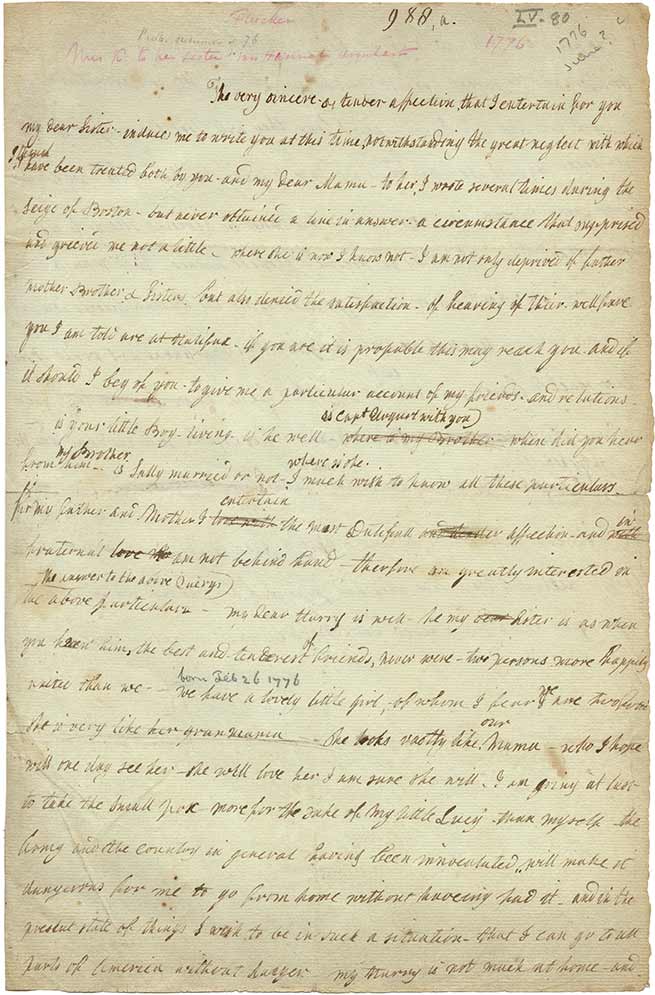 Flucker
988,a.
LV. 80
Prob. summer of 76
1776
1776
June?
Mrs K to her Sister Mrs Hannah Urquhart
The very sincere & tender affection, that I entertain for you
my dear Sister - induce me to write you at this time, notwithstanding the great neglect with which
I have been treated both by you - and my dear Mama - to her, I wrote several times during the
Seige of Boston - but never obtained a line in answer - a circumstance that surprised
and greived me not a little - where she is now I know not - I am not only deprived of father
mother Brother & Sisters, but also denied the satisfaction - of hearing of their wellfare
you I am told are at Halifax - if you are it is probable this may reach you - and if
it should I beg of you - to give me a particular account of my friends - and relations -
is Capt Urquart with you)
is your little Boy - living - is he well - where is my Brother - when did you hear
my Brother
where is she.
from him - is Sally married or not - I much wish to know all these particulars
entertain
for my father and Mother I love with the most Dutifull and tender affection - and with
in
fraternal love am not behind hand - therefore am greatly interested in
the answer to the above Querys)
the above particulars - my dear Harry is well - he my dear Sister is as when
you knew him, the best and tenderest of friends, never were - two persons more happily
born Feb 26 1776
united than we - we have a lovely little girl, of whom I fear we are two fond
she is very like her granmama - She looks vastly like our Mama - who I hope
will one day see her - she will love her I am sure she will - I am going at last
to take the Small Pox - more for the sake of My little Lucy than myself - the
Army and the Country in general having been innoculated, will make it
dangerous for me to go from home without haveing had it - and in the
present state of things I wish to be in such a situation - that I can go to all
parts of America without danger my Harry is not much at home - and